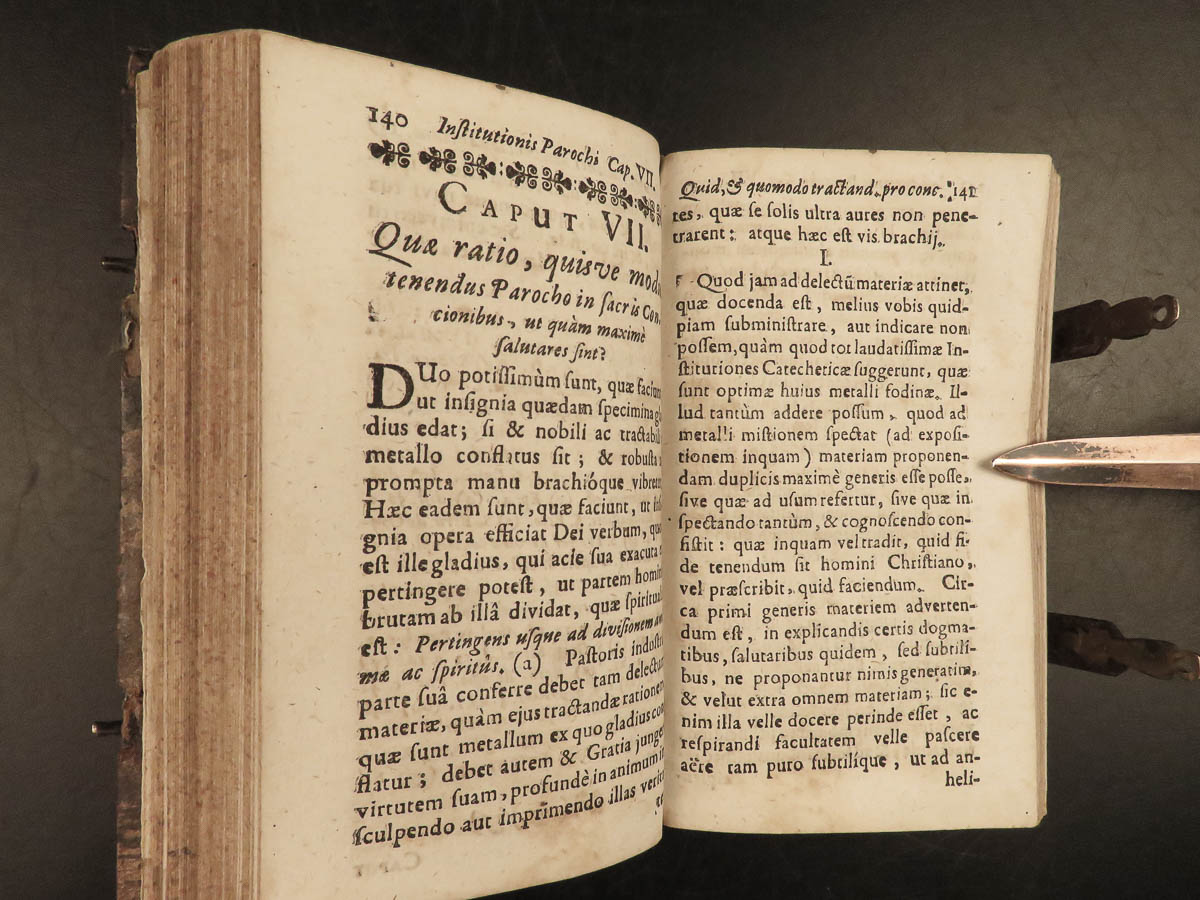 140 Inſtitutionis Parochi Cap. VII.
CAPUT VII.
Quæ ratio, quisve mod
tenendus Parocho in ſacris Con-
cionibus, ut quàm maximè
ſalutares ſint?
DUo potiſſimùm ſunt, quæ faciun
ut inſignia quædam ſpecimina gl
dius edat; ſi & nobili ac tractabil
metallo conflatus ſit; & robuſta
prompta manu brachióque vibretu
Hæc eadem ſunt, quæ faciunt, ut inſi
gnia opera efficiat Dei verbum, quo
eſt ille gladius, qui acie ſua exacuta
pertingere poteſt, ut partem homin
brutam ab illâ dividat, quæ ſpiritual
eſt: Pertingens uſque ad diviſionem an
mæ ac ſpiritûs. (a) Paſtoris induſtri
parte ſuâ conferre debet tam delectum
materiæ, quàm ejus tractandæ rationem
quæ ſunt metallum ex quo gladius con
flatur; debet autem & Gratia junge
virtutem ſuam, profundè in animum in
ſculpendo aut imprimendo illas verita
te
Quid, & quomodo tractand. pro conc. 141
tes, quæ ſe ſolis ultra aures non pene-
trarent: atque hæc eſt vis brachij.
I.
Quod jam ad delectũ materiæ attinet,
quæ docenda eſt, melius vobis quid-
piam ſubminiſtrare, aut indicare non
poſſem, quàm quod tot laudatiſſimæ In-
ſtitutiones Catecheticæ ſuggerunt, quæ
ſunt optimæ huius metalli fodinæ. Il-
lud tantùm addere poſſum, quod ad
metalli miſtionem ſpectat (ad expoſi-
tionem inquam) materiam proponen-
dam duplicis maximè generis eſſe poſſe,
ſive quæ ad uſum refertur, ſive quæ in
ſpectando tantùm, & cognoſcendo con-
ſiſtit: quæ inquam vel tradit, quid fi-
de tenendum ſit homini Chriſtiano,
vel præſcribit, quid faciendum. Cir-
ca primi generis materiem adverten-
dum eſt, in explicandis certis dogma-
tibus, ſalutaribus quidem, ſed ſubtili-
bus, ne proponantur nimis generatim,
& velut extra omnem materiam; ſic e-
nim illa velle docere perinde eſſet, ac
reſpirandi facultatem velle paſcere
aëre tam puro ſubtilíque, ut ad an-
heli-